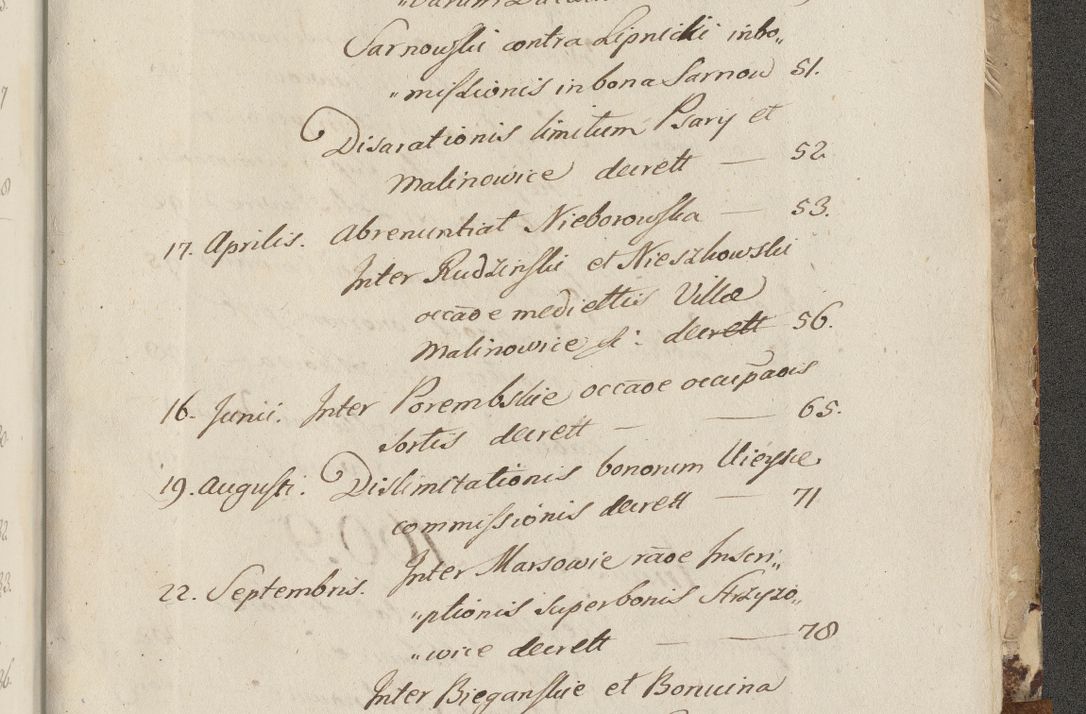 Sarnowski contra Lipnicki inbo„
„missionis in bona Sarnow 51.
Disarationis limitum Psary et
Malinowice decrett — 52
17. Aprilis. Abrenuntiat Nieborowska — 53.
Inter Rudzinski et Nieszkowski
occaōe mediettis Villæ
Malinowice st: decrett 56.
16. Junii. Inter Porembskie occaoe occupāois
Sortis decrett — — 65.
19. Augusti. Dislimitationis bonorum
commissionis decrett — 71
22. Septembris. Inter Marsowie rāoe Inscri„
„ptionis super bonis Strzyżo„
„wice decrett — 78
Inter Bieganskie et Bonucina